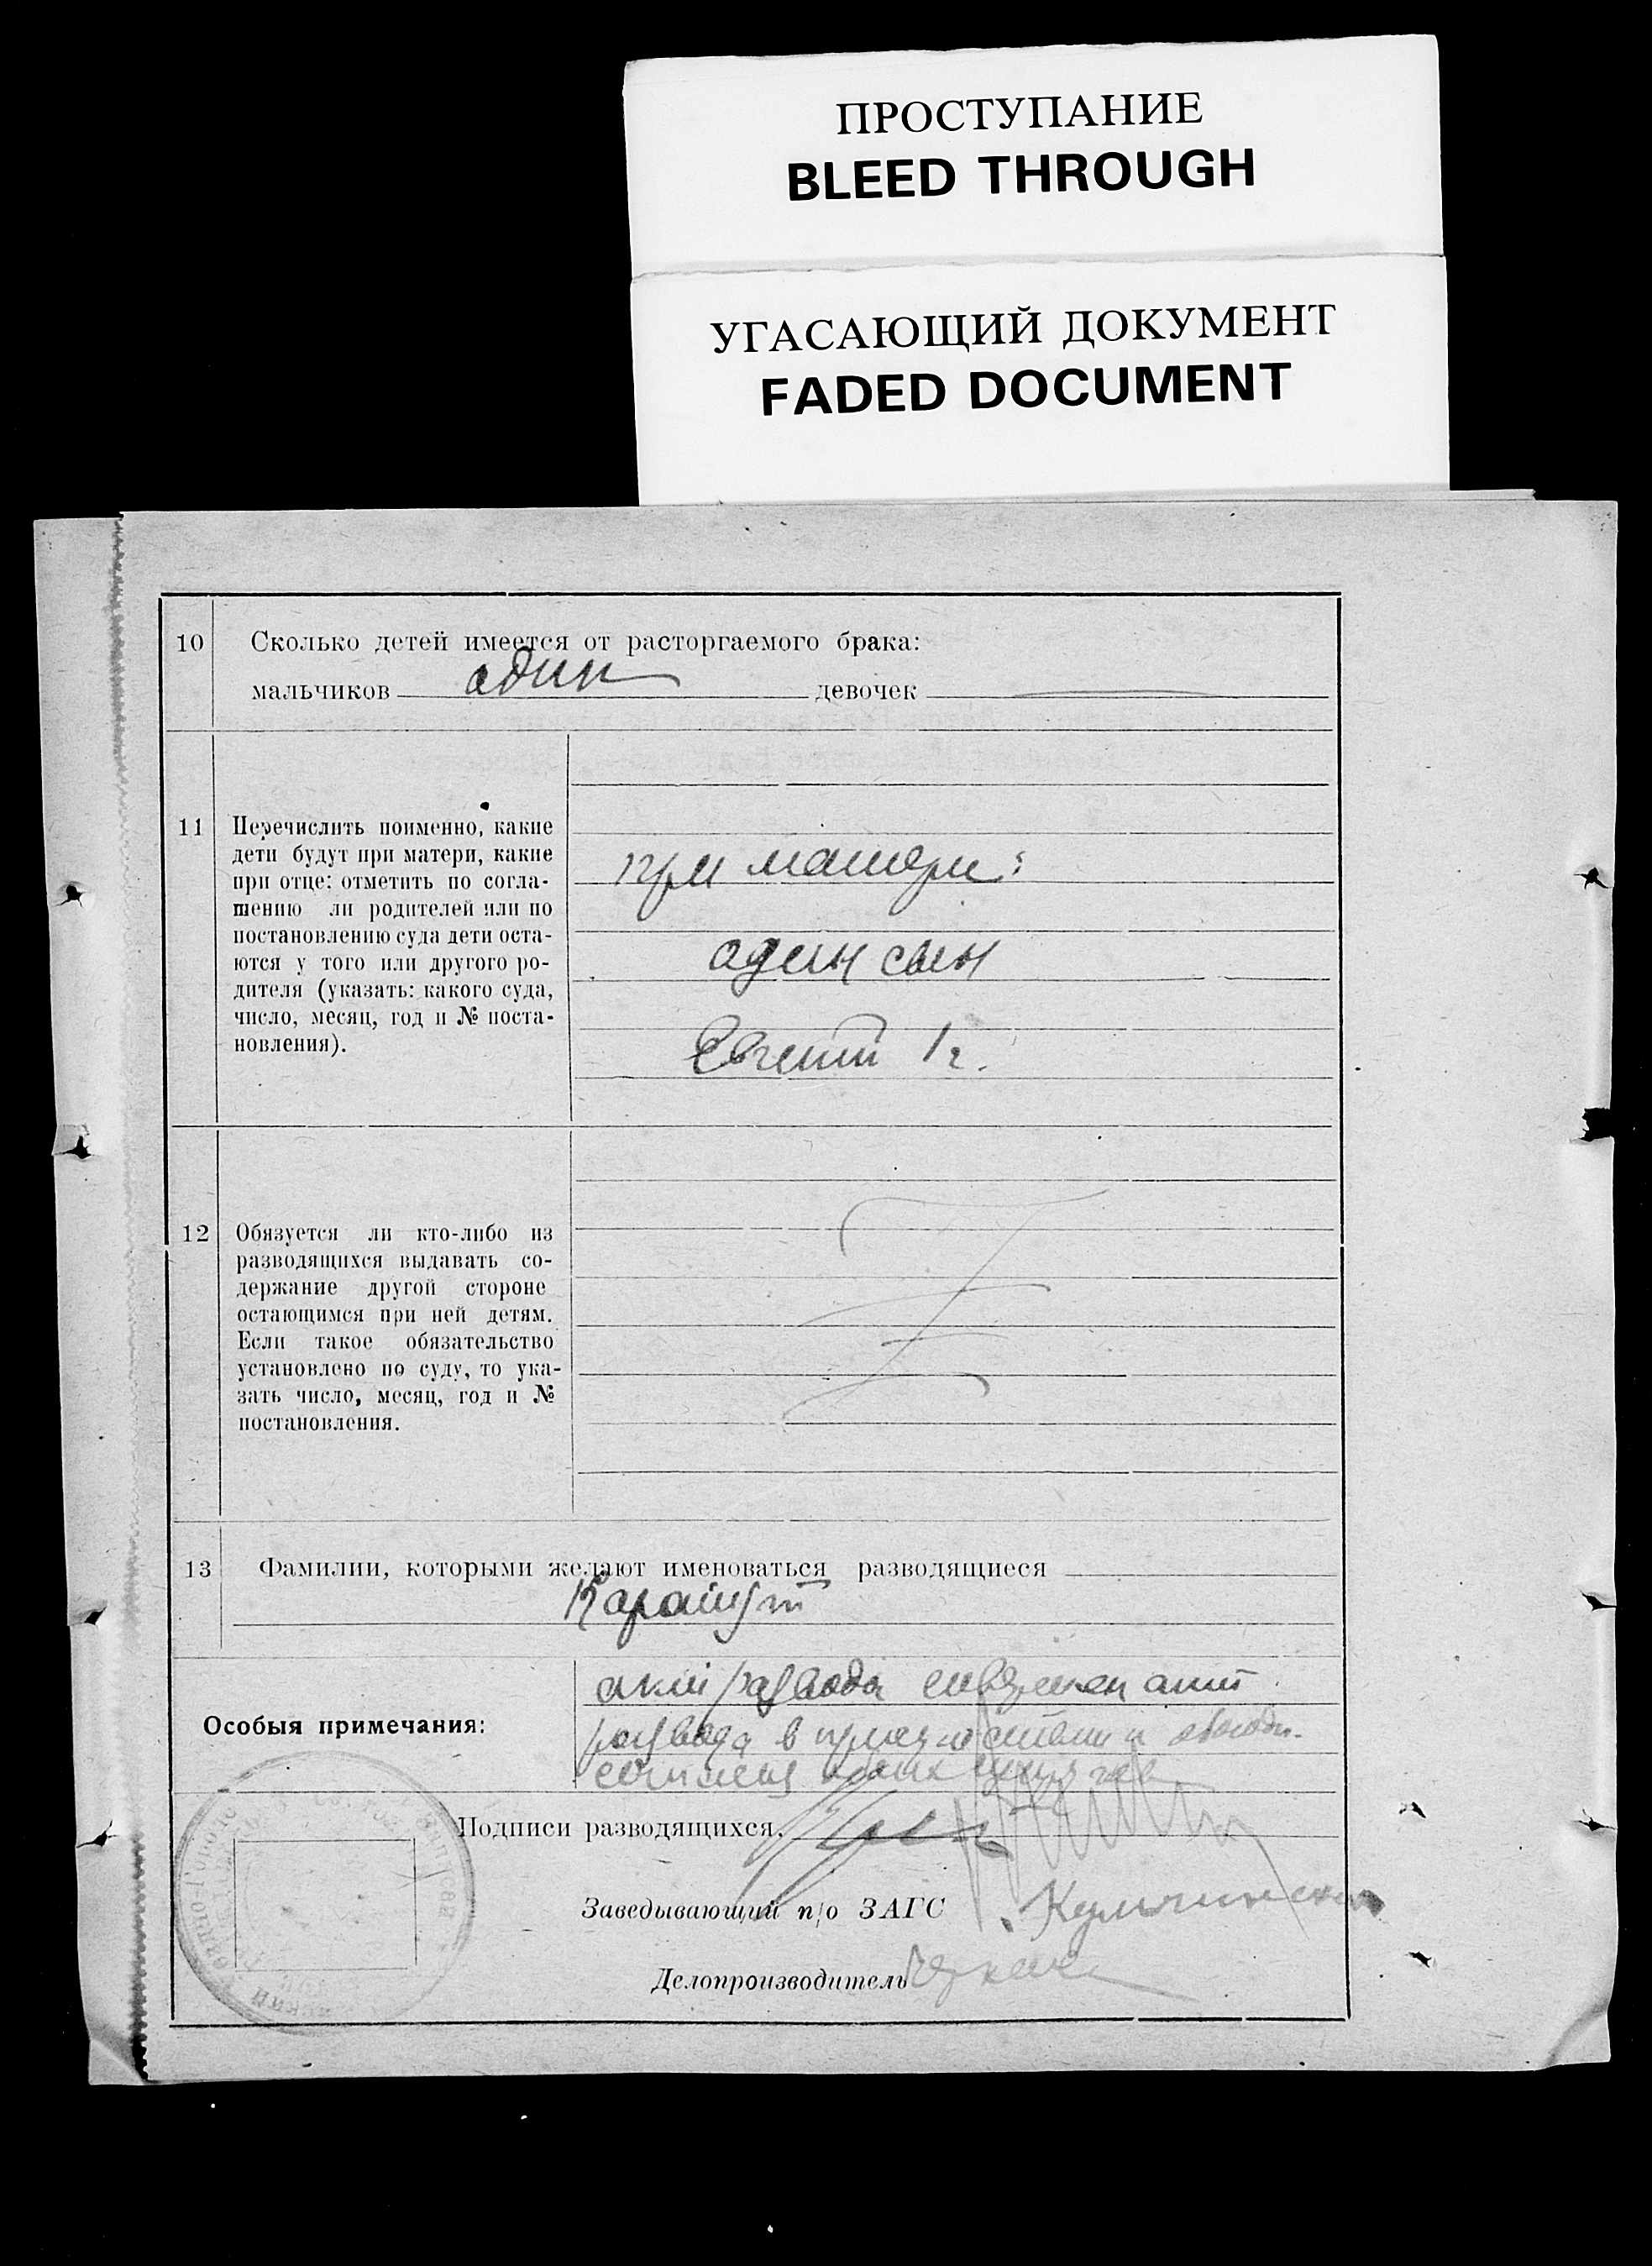 ПРОСТУПАНИЕ
BLEED THROUGH
УГАСАЮЩИЙ ДОКУМЕНТ
FADED DOCUMENT
10 Сколько детей имеется от расторгаемого брака:
мальчиков один девочек —
11 Перечислить поименно, какие
дети будут при матери, какие
при отце: отметить по согла-
шению ли родителей или по
постановлению суда дети оста-
ются у того или другого ро-
дителя (указать: какого суда,
число, месяц, год и № поста-
новления).
при матери:
один сын
Евгений 1 г.
12 Обязуется ли кто-либо из
разводящихся выдавать со-
держание другой стороне
остающимся при ней детям.
Если такое обязательство
установлено по суду, то ука-
зать число, месяц, год и №
постановления.
13 Фамилии, которыми желают именоваться разводящиеся
Особыя примечания:
акт развода акт
развода в
Подписи разводящихся,
Заведывающий п/о ЗАГС
Делопроизводитель